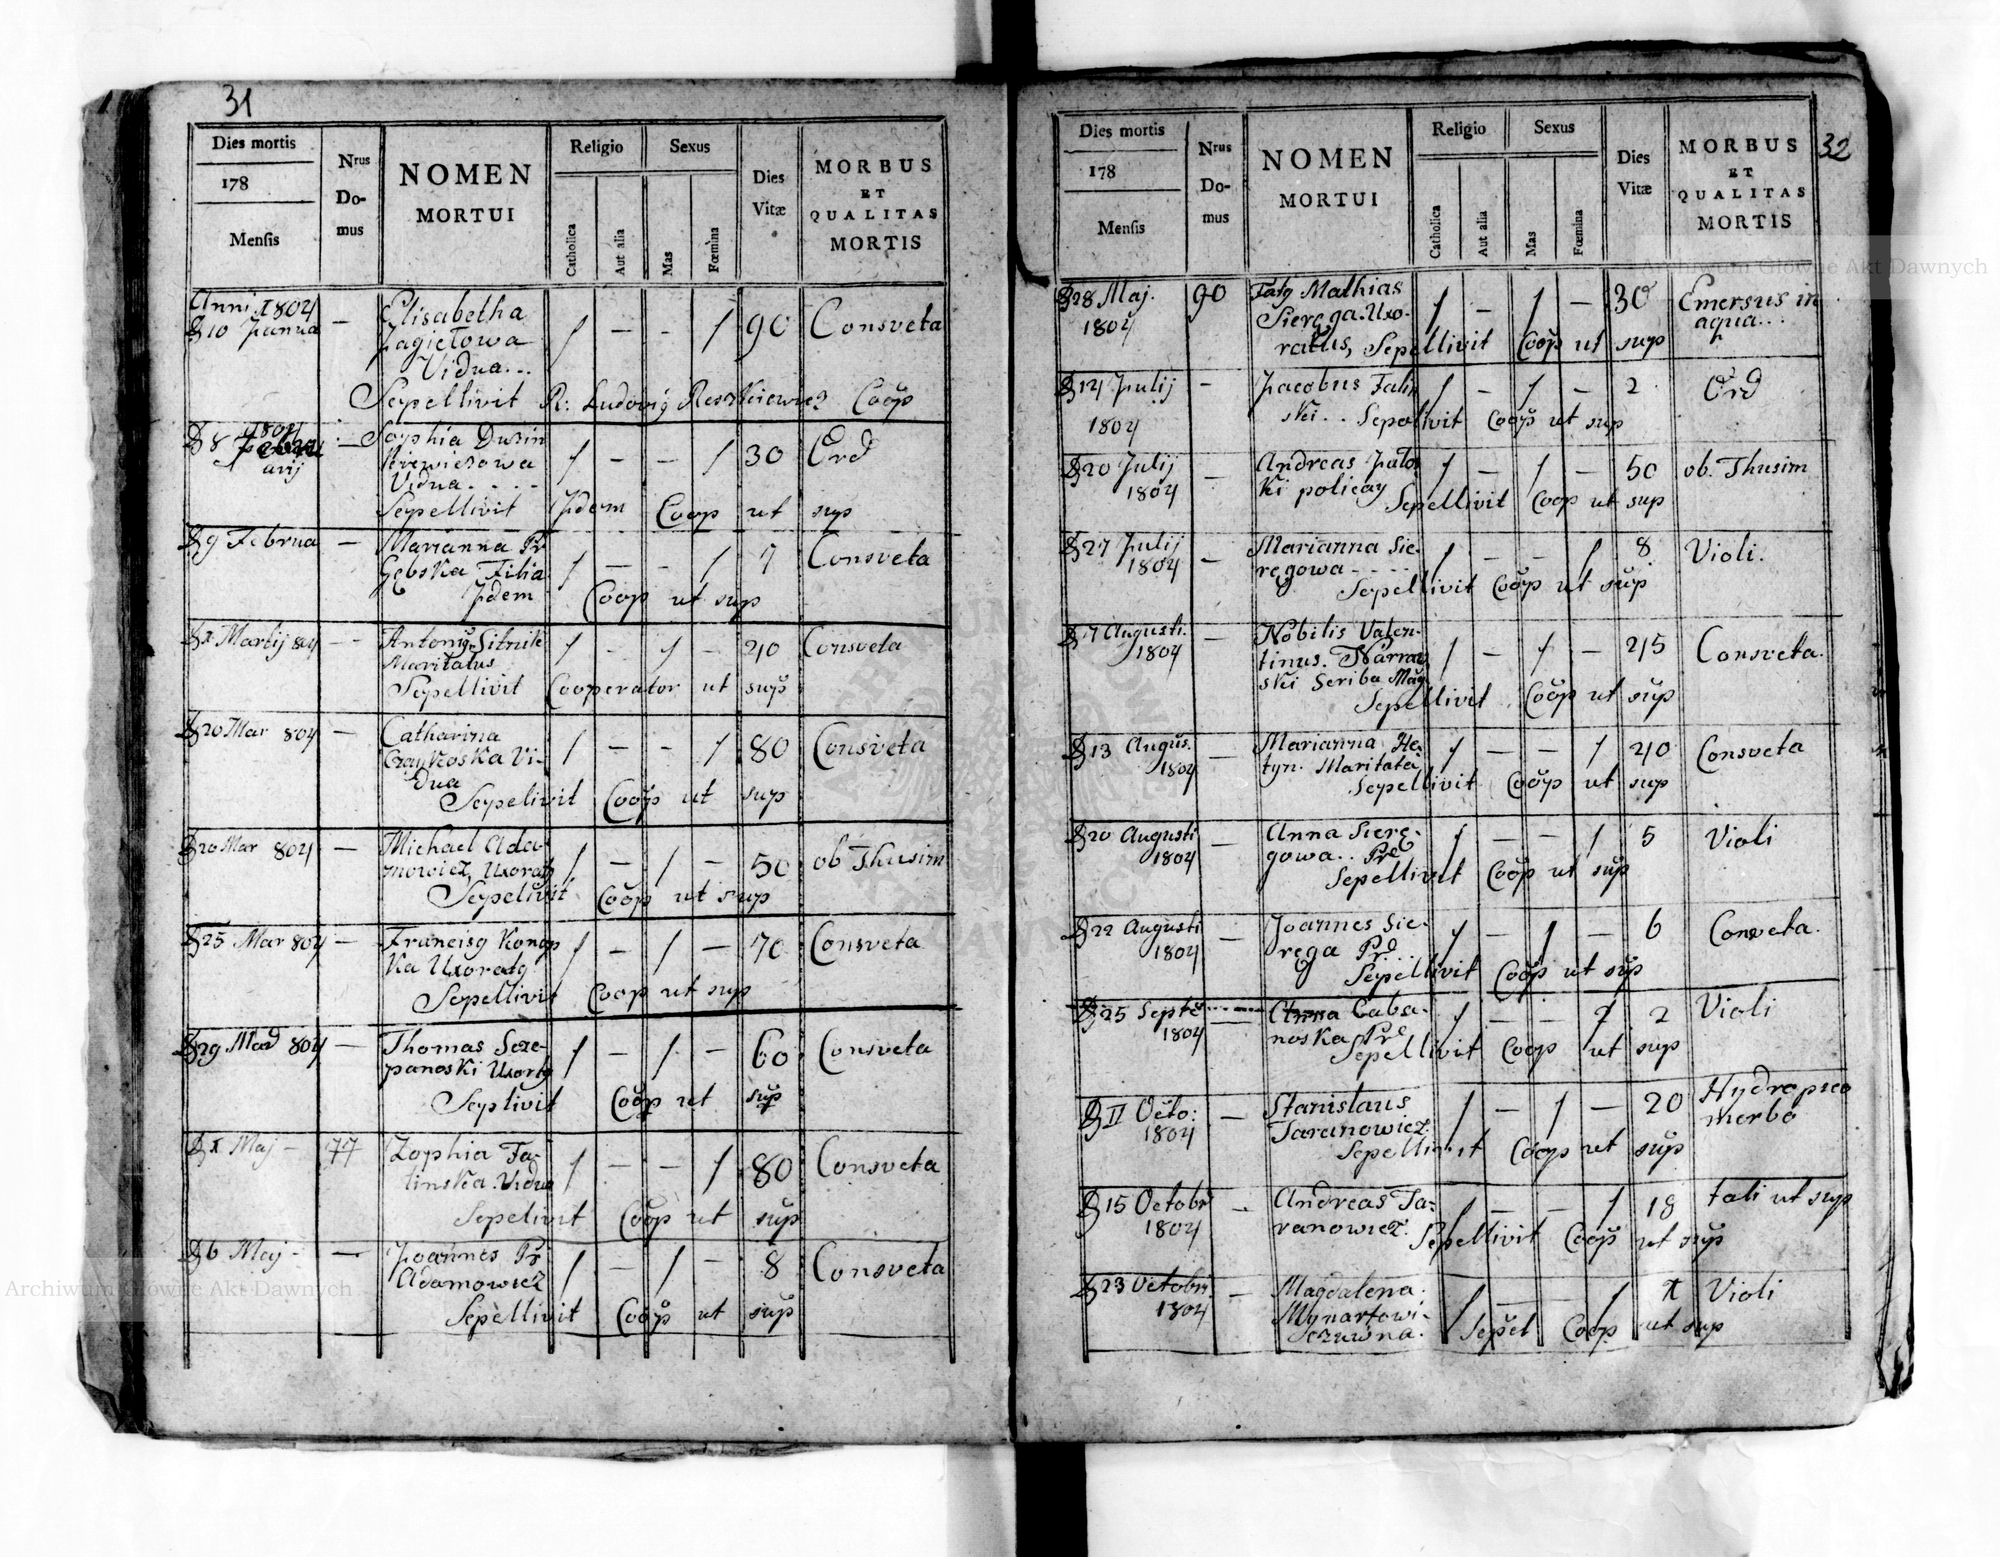 31
Dies mortis
178
Mensis
Nrus Domus
NOMEN MORTUI
Religio
Catholica
Aut alia
Sexus
Mas
Fœmina
Dies Vitæ
MORBUS ET QUALITAS MORTIS
Anni 1804
10 Janua — Elisabetha / — — / 90 Consveta
Jagiełowa
Vidua...
Sepellivit R: Ludovig Reszkiewicz Coop
1804
8 Febru — Sophia Duszin / — — / 30 Ord
arij
Vidua. . . .
Sepellivit Jdem Coop ut sup
9 Februa — Marianna Pr / — — / 7 Consveta
Gębska Filia
Jdem Coop ut sup
x Martij 804 — Antonig Sitnik / — / — 40 Consveta
Maritatus
Sepellivit Cooperator ut sup
20 Mar 804 — Catharina / — — / 80 Consveta
Vi-
dua
Sepelivit Coop ut sup
20 Mar 804 — Michael Ada- / — / — 50 ob Thusim
mowicz, Uxoratg
Sepelivit, Coop ut sup
25 Mar 804 — Francisg Konop / — / — 70 Consveta
ka Uxoratg
Sepellivit Coop ut sup
29 Mar 804 — Thomas Szcze- / — / — 60 Consveta
panoski Uxoratg
Seplivit Coop ut sup
x Maj — 77 Zophia Fa- / — — / 80 Consveta
linska Vidua
Sepelivit Coop ut sup
6 Maj — Joannes Pr / — / — 8 Consveta
Adamowicz
Sepellivit Coop ut sup
32
Dies mortis
178
Mensis
Nrus Domus
NOMEN MORTUI
Religio
Catholica
Aut alia
Sexus
Mas
Fœmina
Dies Vitæ
MORBUS ET QUALITAS MORTIS
28 Maj. 90 Mathias / — / — 30 Emersus in
1804 Sieręga Uxo- aqua...
ratus, Sepellivit Coop ut sup
14 Julij — Jacobus Falin / — / — 2 Ord
1804 ski.. Sepellivit Coop ut sup
20 Julij — Andreas / — / — 50 ob. Thusim
1804 ki policay Sepellivit Coop ut sup
27 Julij — Marianna Sie- / — — / 8 Violi.
1804 ręgowa
Sepellivit Coop ut sup
7 Augusti. — Nobilis Valen- / — / — 45 Consveta.
1804 tinus.
ski Scriba Mag
Sepellivit Coop ut sup
13 Augus. — Marianna He- / — — / 40 Consveta
1804 tyn. Maritata
Sepellivit Coop ut sup
20 Augusti — Anna Sierę- / — — / 5 Violi
1804 gowa.. Pre
Sepellivit Coop ut sup
22 Augusti — Joannes Sie- / — / — 6 Conveta.
1804 ręga Pr.
Sepellivit Coop ut sup
25 Septe — Anna Caba- / — — / 2 Violi
1804 noska Pre
Sepellivit Coop ut sup
II Octo: — Stanislaus / — / — 20 Hydropico
1804 Taranowicz morbo
Sepellivit Coop ut sup
15 Octobr — Andreas Ta- / — — / 18 tali ut sup
1804 ranowicz. Sepellivit Coop ut sup
23 Octobri — Magdalena / — — / x Violi
1804 Mynartowi-
czuwna. Sepel Coop ut sup
Archiwum Główne Akt Dawnych
Archiwum Główne Akt Dawnych